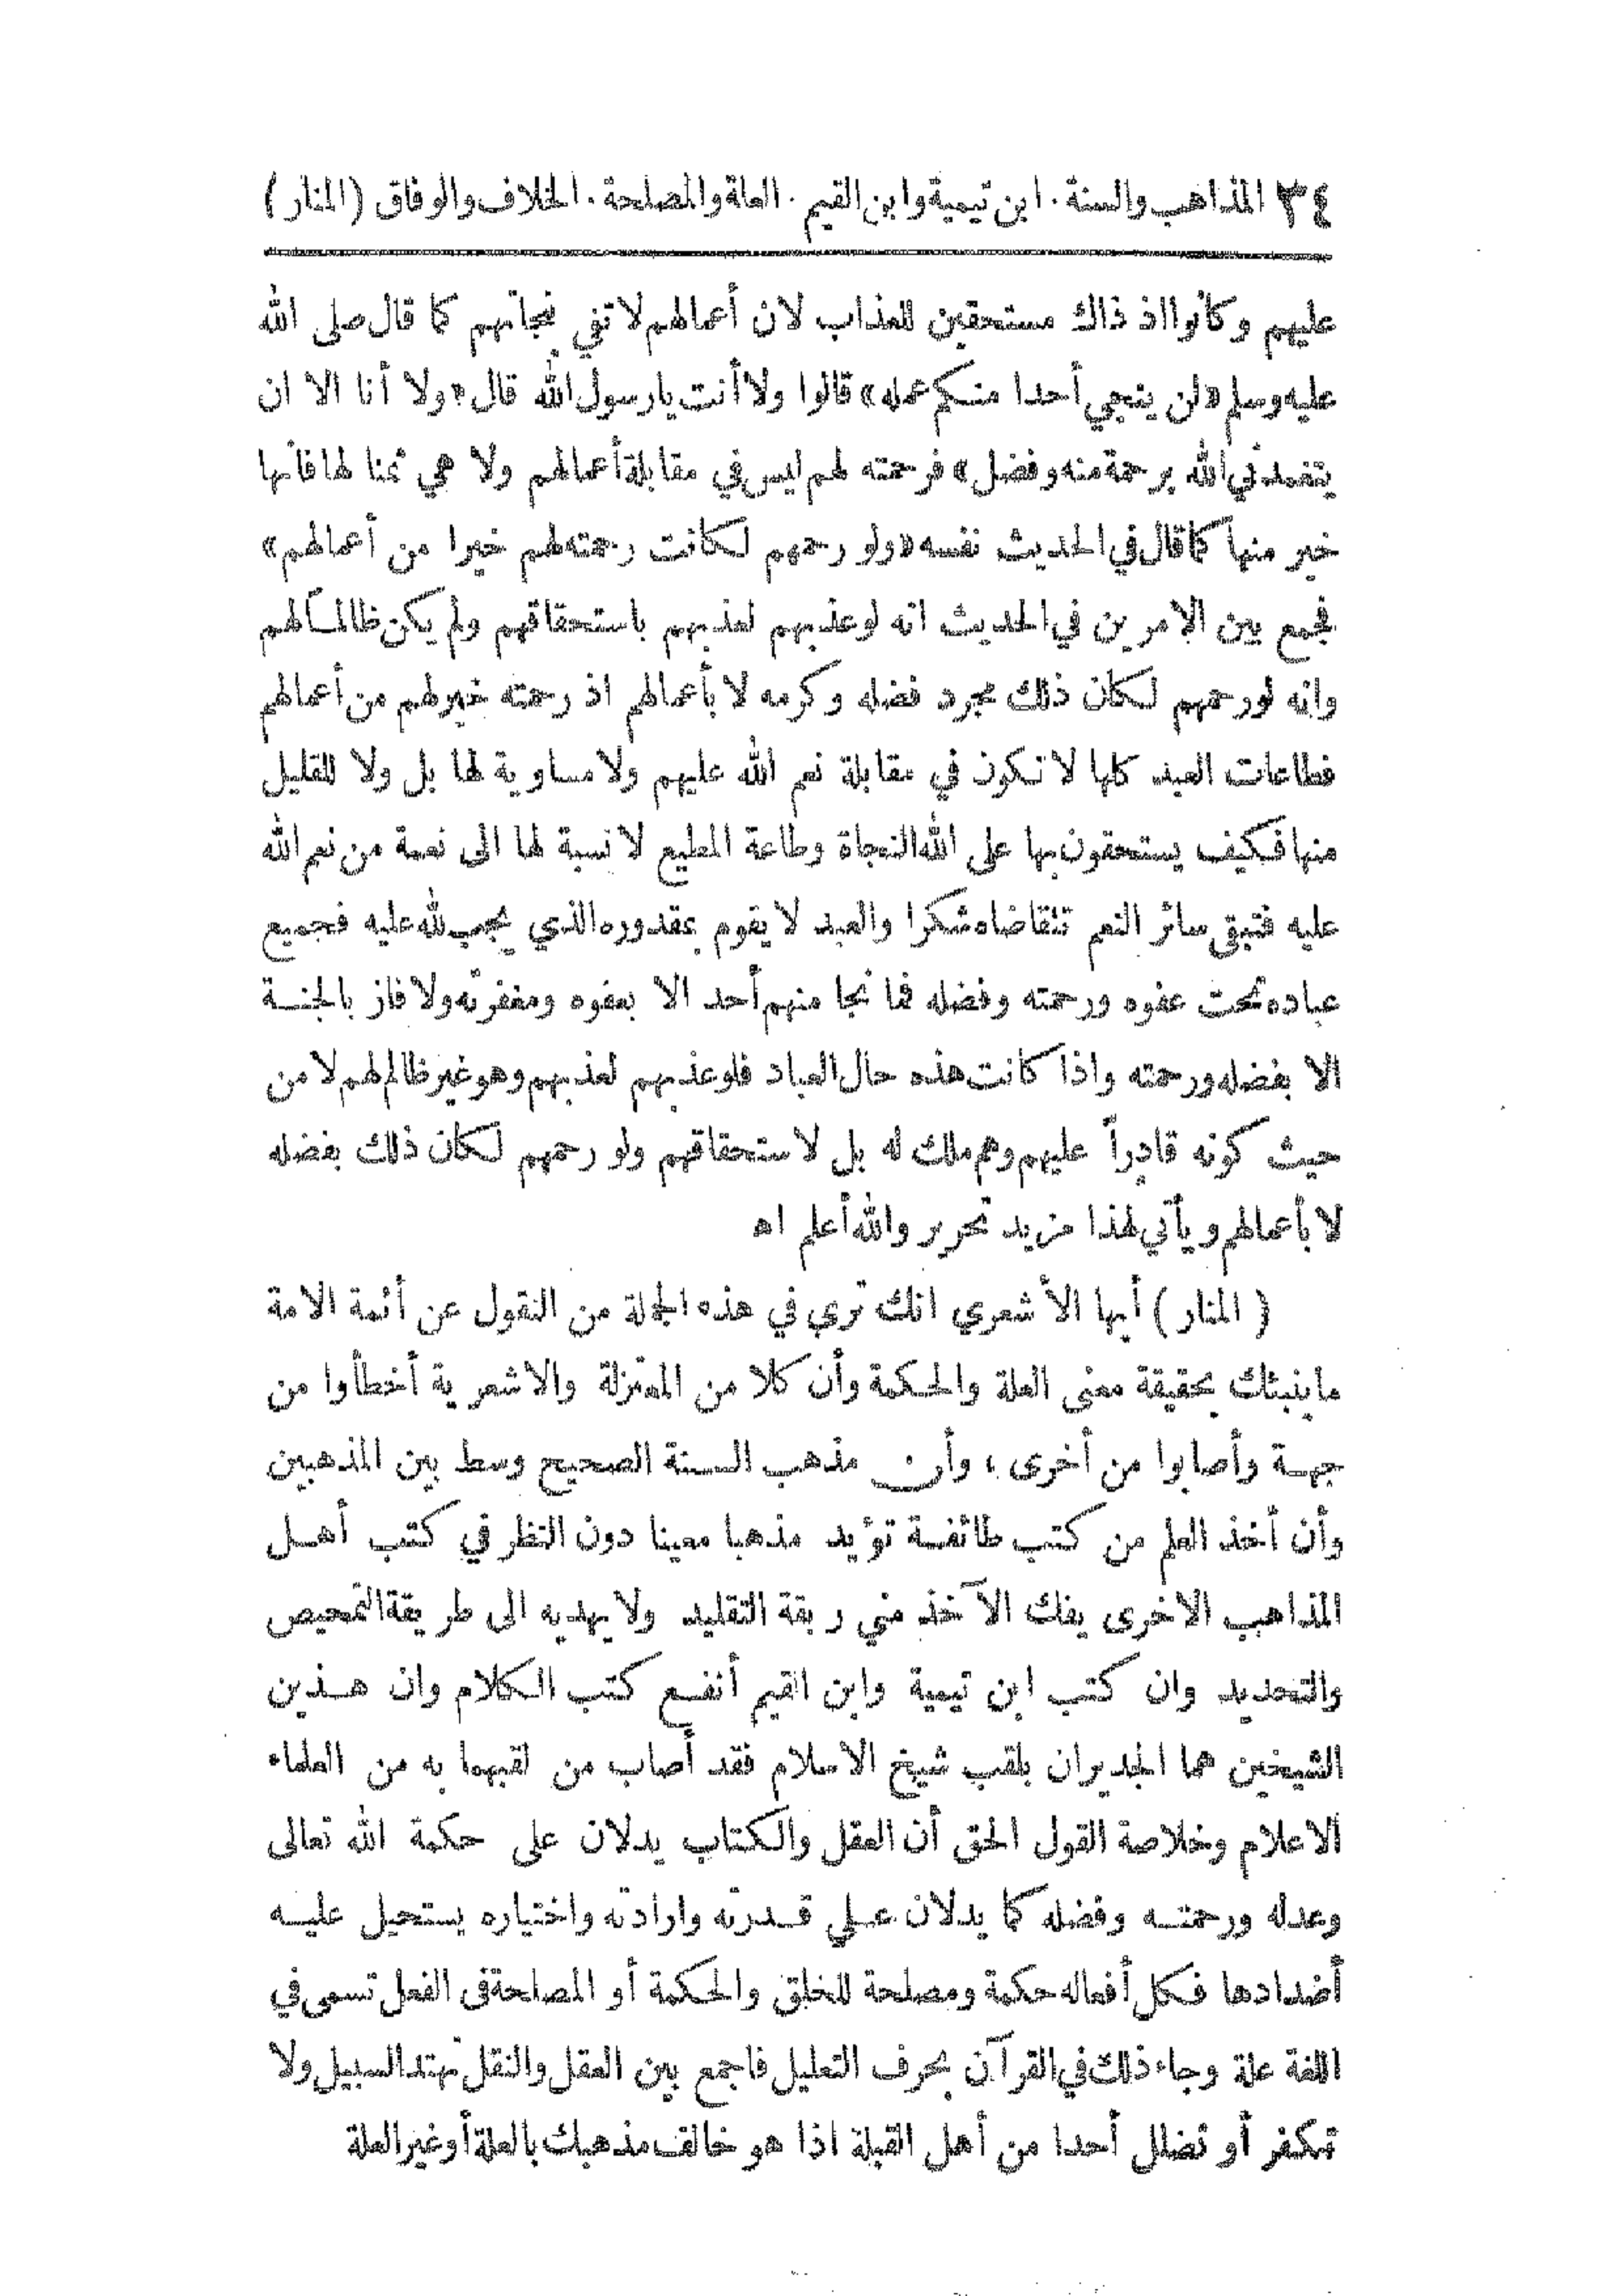 ٣٤ المذاهب والسنة. ابن تيمية وابن القيم. العلة والمصلحة. الخلاف والوفاق (المنار)
عليهم وكانوا اذ ذاك مستحقين للعذاب لان أعمالهم لا تفي بنجاتهم كما قال صلى الله
عليه وسلم «لن ينجي أحدا منكم عمله» قالوا ولا أنت يا رسول الله قال «ولا أنا الا ان
يتغمدني الله برحمة منه وفضل» فرحمته لهم ليس في مقابلة أعمالهم ولا هي ثمنا لها فانها
خير منها كما قال في الحديث نفسه «ولو رحمهم لكانت رحمته لهم خيرا من أعمالهم»
فجمع بين الامرين في الحديث انه لو عذبهم لعذبهم باستحقاقهم ولم يكن ظالما لهم
وانه لو رحمهم لكان ذلك مجرد فضله وكرمه لا بأعمالهم اذ رحمته خير لهم من أعمالهم
فطاعات العبد كلها لا تكون في مقابلة نعم الله عليهم ولا مساوية لها بل ولا للقليل
منها فكيف يستحقون بها على الله النجاة وطاعة المطيع لا نسبة لها الى نعمة من نعم الله
عليه فتبقى سائر النعم تتقاضاه شكرا والعبد لا يقوم بمقدوره الذي يجب لله عليه فجميع
عباده تحت عفوه ورحمته وفضله فما نجا منهم أحد الا بعفوه ومغفرته ولا فاز بالجنة
الا بفضله ورحمته واذا كانت هذه حال العباد فلو عذبهم لعذبهم وهو غير ظالم لهم لا من
حيث كونه قادراً عليهم وهم ملك له بل لاستحقاقهم ولو رحمهم لكان ذلك بفضله
لا بأعمالهم ويأتي لهذا مزيد تحرير والله أعلم اه
( المنار ) أيها الأشعري انك ترى في هذه الجملة من النقول عن أئمة الامة
ما ينبئك بحقيقة معنى العلة والحكمة وأن كلا من المعتزلة والاشعرية أخطأوا من
جهة وأصابوا من أخرى ، وأن مذهب السنة الصحيح وسط بين المذهبين
وأن أخذ العلم من كتب طائفة تؤيد مذهبا معينا دون النظر في كتب أهل
المذاهب الاخرى يفك الآخذ مني ربقة التقليد ولا يهديه الى طريقة التمحيص
والتحديد وان كتب ابن تيمية وابن القيم أنفع كتب الكلام وان هذين
الشيخين هما الجديران بلقب شيخ الاسلام فقد أصاب من لقبهما به من العلماء
الاعلام وخلاصة القول الحق أن العقل والكتاب يدلان على حكمة الله تعالى
وعدله ورحمته وفضله كما يدلان على قدرته وارادته واختياره يستحيل عليه
أضدادها فكل أفعاله حكمة ومصلحة للخلق والحكمة أو المصلحة فى الفعل تسمى في
اللغة علة وجاء ذلك في القرآن بحرف التعليل فاجمع بين العقل والنقل تهتد السبيل ولا
تكفر أو تضلل أحدا من أهل القبلة اذا هو خالف مذهبك بالعلة أو غير العلة